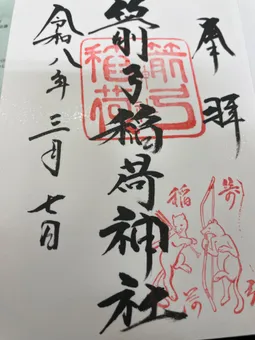 奉拝
箭弓稲荷神社
令和八年三月七日
箭弓
稲荷
箭弓
稲荷